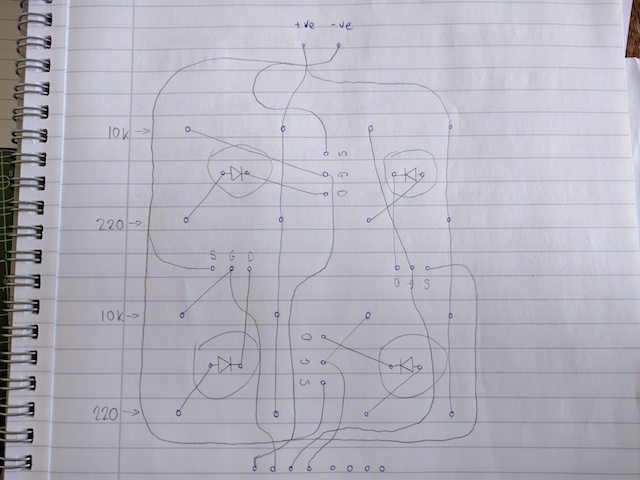 +ve -ve
10k →
S
G
D
220 →
S G D
D G S
10k →
D
G
S
220 →